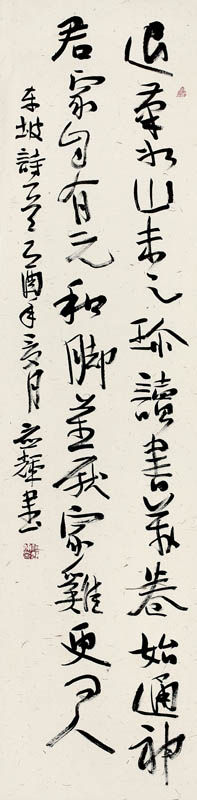 退筆如山未足珍讀書萬卷始通神
君家自有元和腳莫厭家雞更問人
東坡詩一首乙酉年夏月應輝書